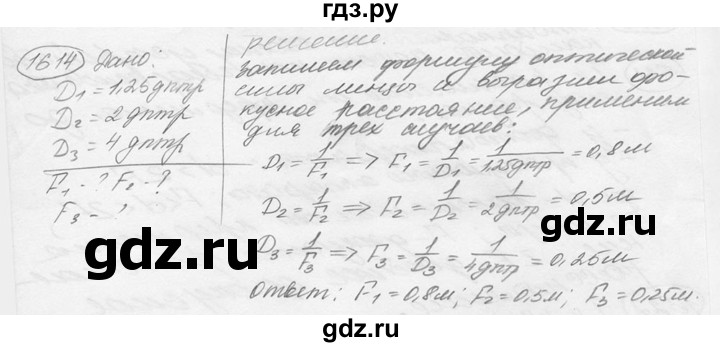 гдз.ру
1614 Дано:
D₁ = 1,25 дптр
D₂ = 2 дптр
D₃ = 4 дптр
F₁ - ? F₂ - ?
F₃ - ?
решение.
запишем формулу оптической
силы линзы и выразим фо-
кусное расстояние, применим
для трех случаев:
D₁ = 1/F₁ => F₁ = 1/D₁ = 1/1,25 дптр = 0,8 м
D₂ = 1/F₂ => F₂ = 1/D₂ = 1/2 дптр = 0,5 м
D₃ = 1/F₃ => F₃ = 1/D₃ = 1/4 дптр = 0,25 м
ответ: F₁ = 0,8 м; F₂ = 0,5 м; F₃ = 0,25 м.
gdz.ru
gdz.ru
gdz.ru
gdz.ru